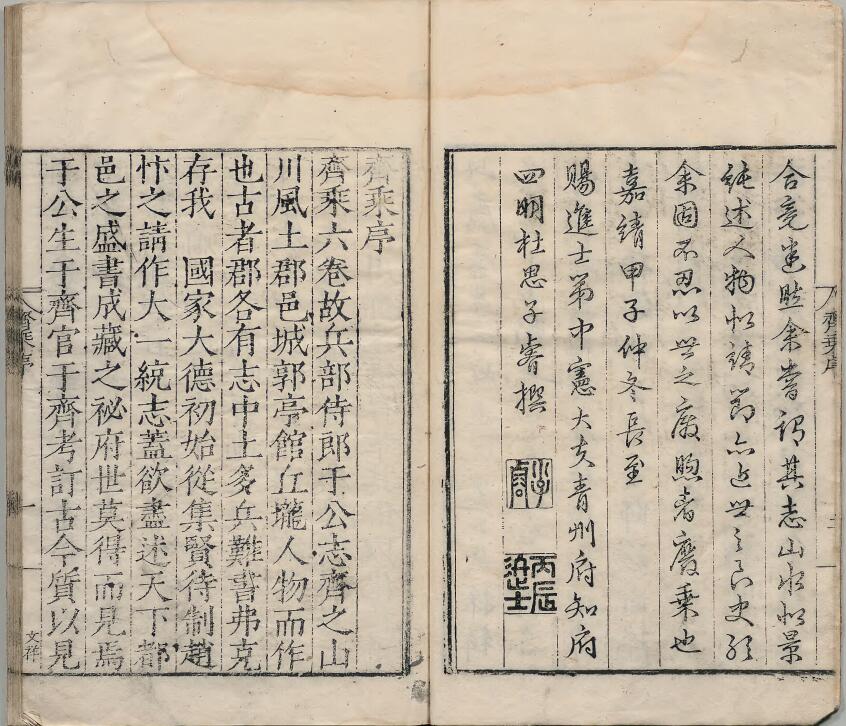 合竟進睦余嘗謂其志山水似景
純述人物似靖節亦近世之良史ార
余固不忍以世之廢
嘉靖甲子仲冬長至
賜進士第中憲大夫青州府知府
四明杜思子睿撰
丙辰進士
齊乘序
齊乘序
齊乘六卷故兵部侍郎于公志齊之山
川風土郡邑城郭亭館丘壠人物而作
也古者郡各有志中土多兵難書弗克
存我 國家大德初始從集賢待制趙
忭之請作大一統志蓋欲盡述天下都
邑之盛書成藏之祕府世莫得而見焉
于公生于齊官于齊考訂古今質以見
齊乘序
一
文祥